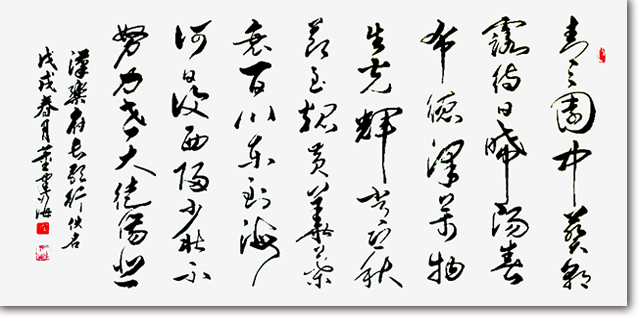 青々園中葵朝
露待日晞陽春
布德澤萬物
生光輝常恐秋
節至焜黃華葉
衰百川東到海
何日復西歸少壯不
努力老大徒傷悲
漢樂府長歌行佚名
戊戌春月董海